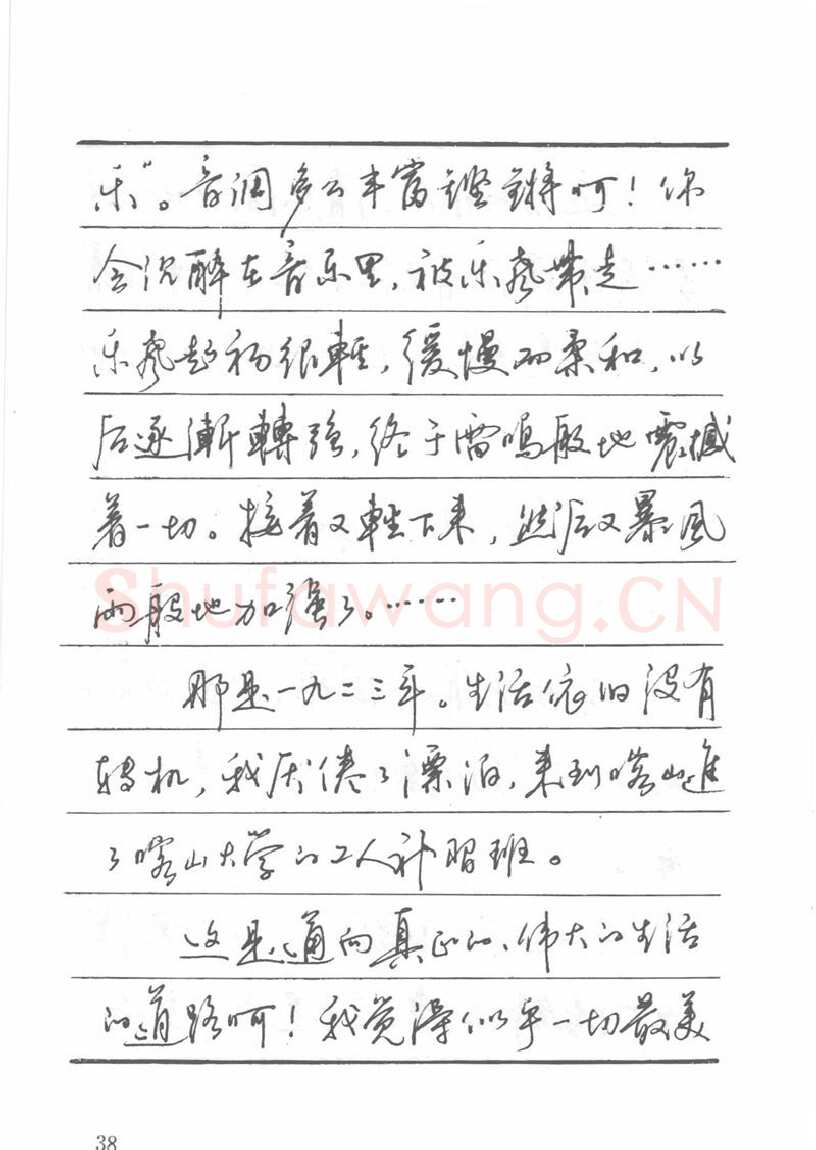 乐”。音调多么丰富铿锵呵！你
会沉醉在音乐里，被乐声带走……
乐声起初很輕，缓慢而柔和，以
后逐漸轉强，终于雷鳴般地震撼
着一切。接着又輕下来，然后又暴风
雨般地加强了。……
那是一九二三年。生活依旧没有
转机，我厌倦了漂泊，来到喀山進
了喀山大学的工人补習班。
这是通向真正的、伟大的生活
的道路呵！我觉得似乎一切最美
38
Shufawang.CN